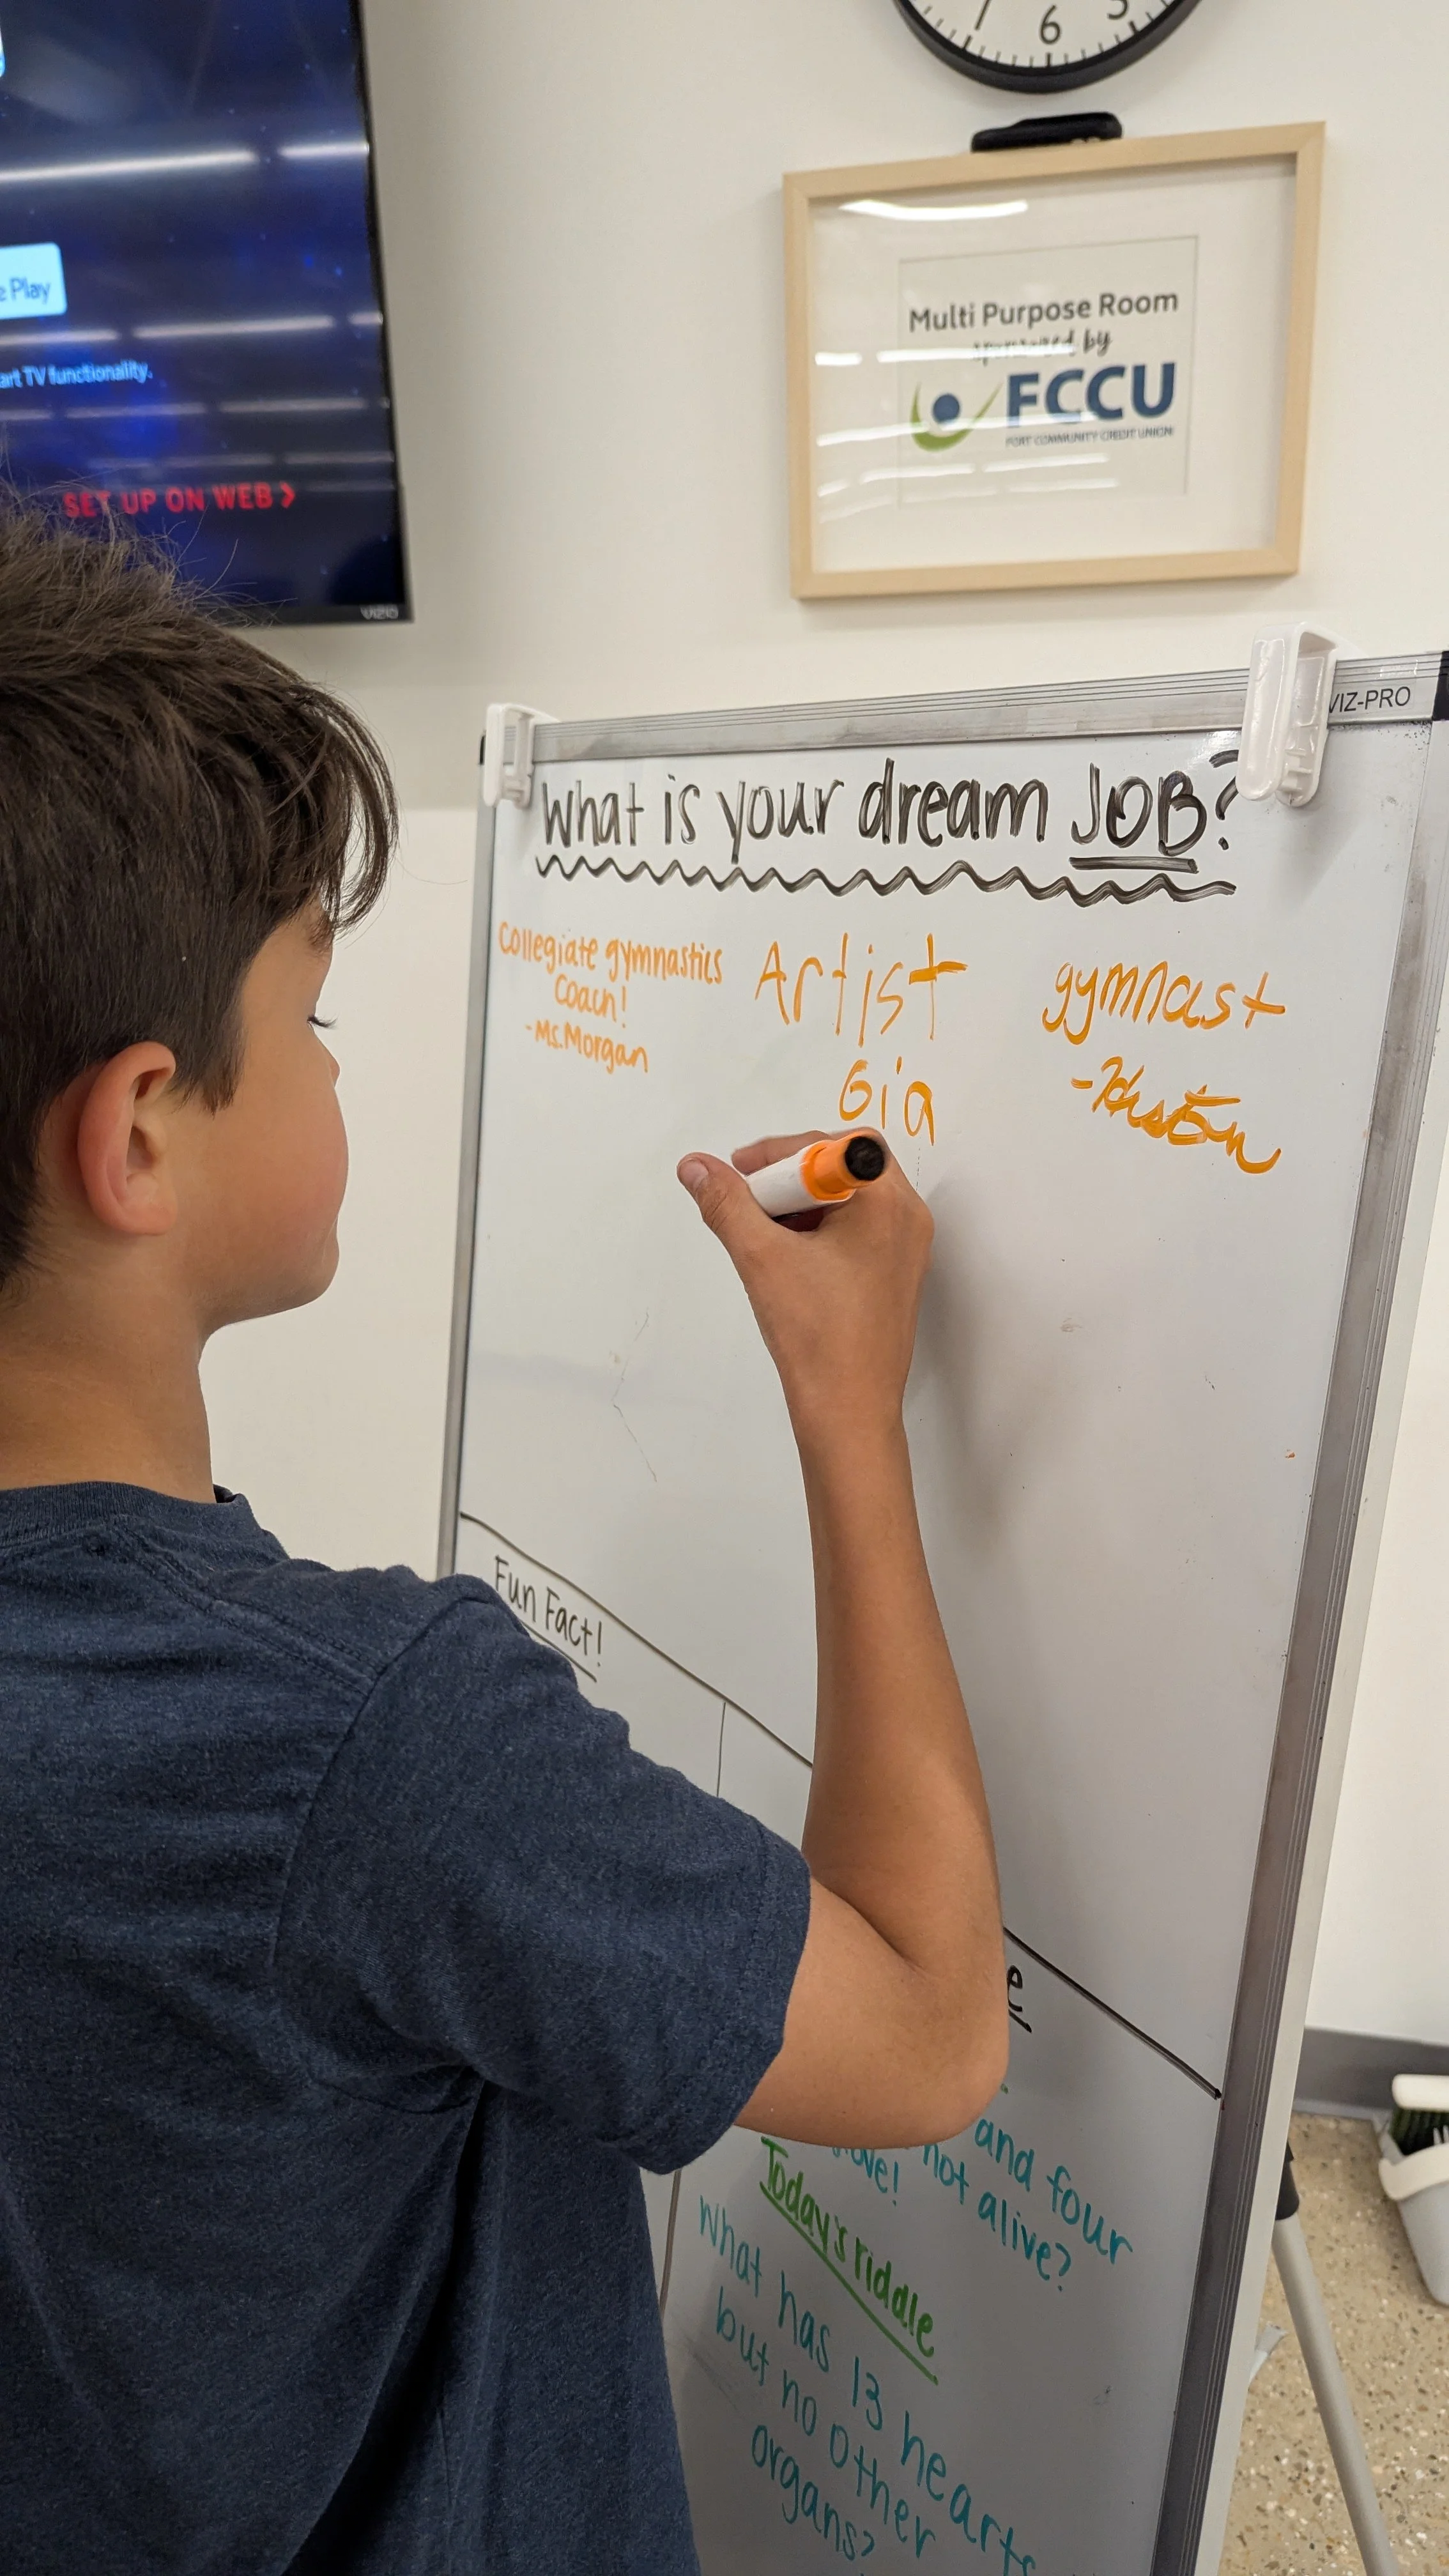 7 6 5
e Play
art TV functionality.
SET UP ON WEB >
VIZIO
Multi Purpose Room
sponsored by
FCCU
FORT COMMUNITY CREDIT UNION
VIZ-PRO
What is your dream JOB?
Collegiate gymnastics
Coach!
-Ms.Morgan
Artist
Gia
gymnast
Fun Fact!
e
and four
not alive?
Today's riddle
What has 13 hearts
but no other
organs?